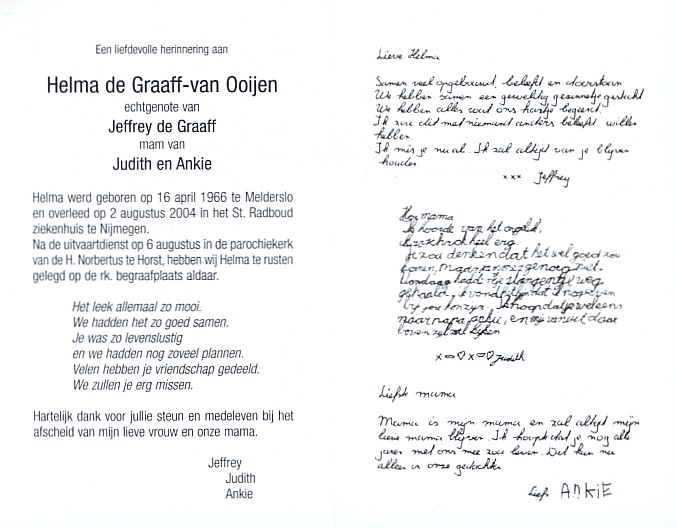 Een liefdevolle herinnering aan
Helma de Graaff-van Ooijen
echtgenote van
Jeffrey de Graaff
mam van
Judith en Ankie
Helma werd geboren op 16 april 1966 te Melderslo
en overleed op 2 augustus 2004 in het St. Radboud
ziekenhuis te Nijmegen.
Na de uitvaartdienst op 6 augustus in de parochiekerk
van de H. Norbertus te Horst, hebben wij Helma te rusten
gelegd op de rk. begraafplaats aldaar.
Het leek allemaal zo mooi.
We hadden het zo goed samen.
Je was zo levenslustig
en we hadden nog zoveel plannen.
Velen hebben je vriendschap gedeeld.
We zullen je erg missen.
Hartelijk dank voor jullie steun en medeleven bij het
afscheid van mijn lieve vrouw en onze mama.
Jeffrey
Judith
Ankie
Lieve Helma
Samen veel opgebouwd, beleefd en doorstaan
We hebben samen een geweldig gezinnetje gesticht
We hebben alles wat ons hartje begeert.
Ik zou dit met niemand anders beleefd willen
hebben.
Ik mis je nu al. Ik zal altijd van je blijven
houden.
xxx Jeffrey
Hoi mama
Ik hoorde van het ongeluk,
ik schrok heel erg.
Je zou denken dat het wel goed zou
komen, maar jammer genoeg niet.
hadden ze je slangentje weg
gehaald, ik vond het fijn dat ik nog even
bij jou kon zijn, ik hoop dat je weleens
naar papa, ankie, en mij vanuit daar
boven zal kijken
Judith
Liefste mama
Mama is mijn mama en zal altijd mijn
lieve mama blijven. Ik hoopte dat je nog alle
jaren met ons mee zou leven. Dat kan nu
alleen in onze gedachten
Liefs ANKIE